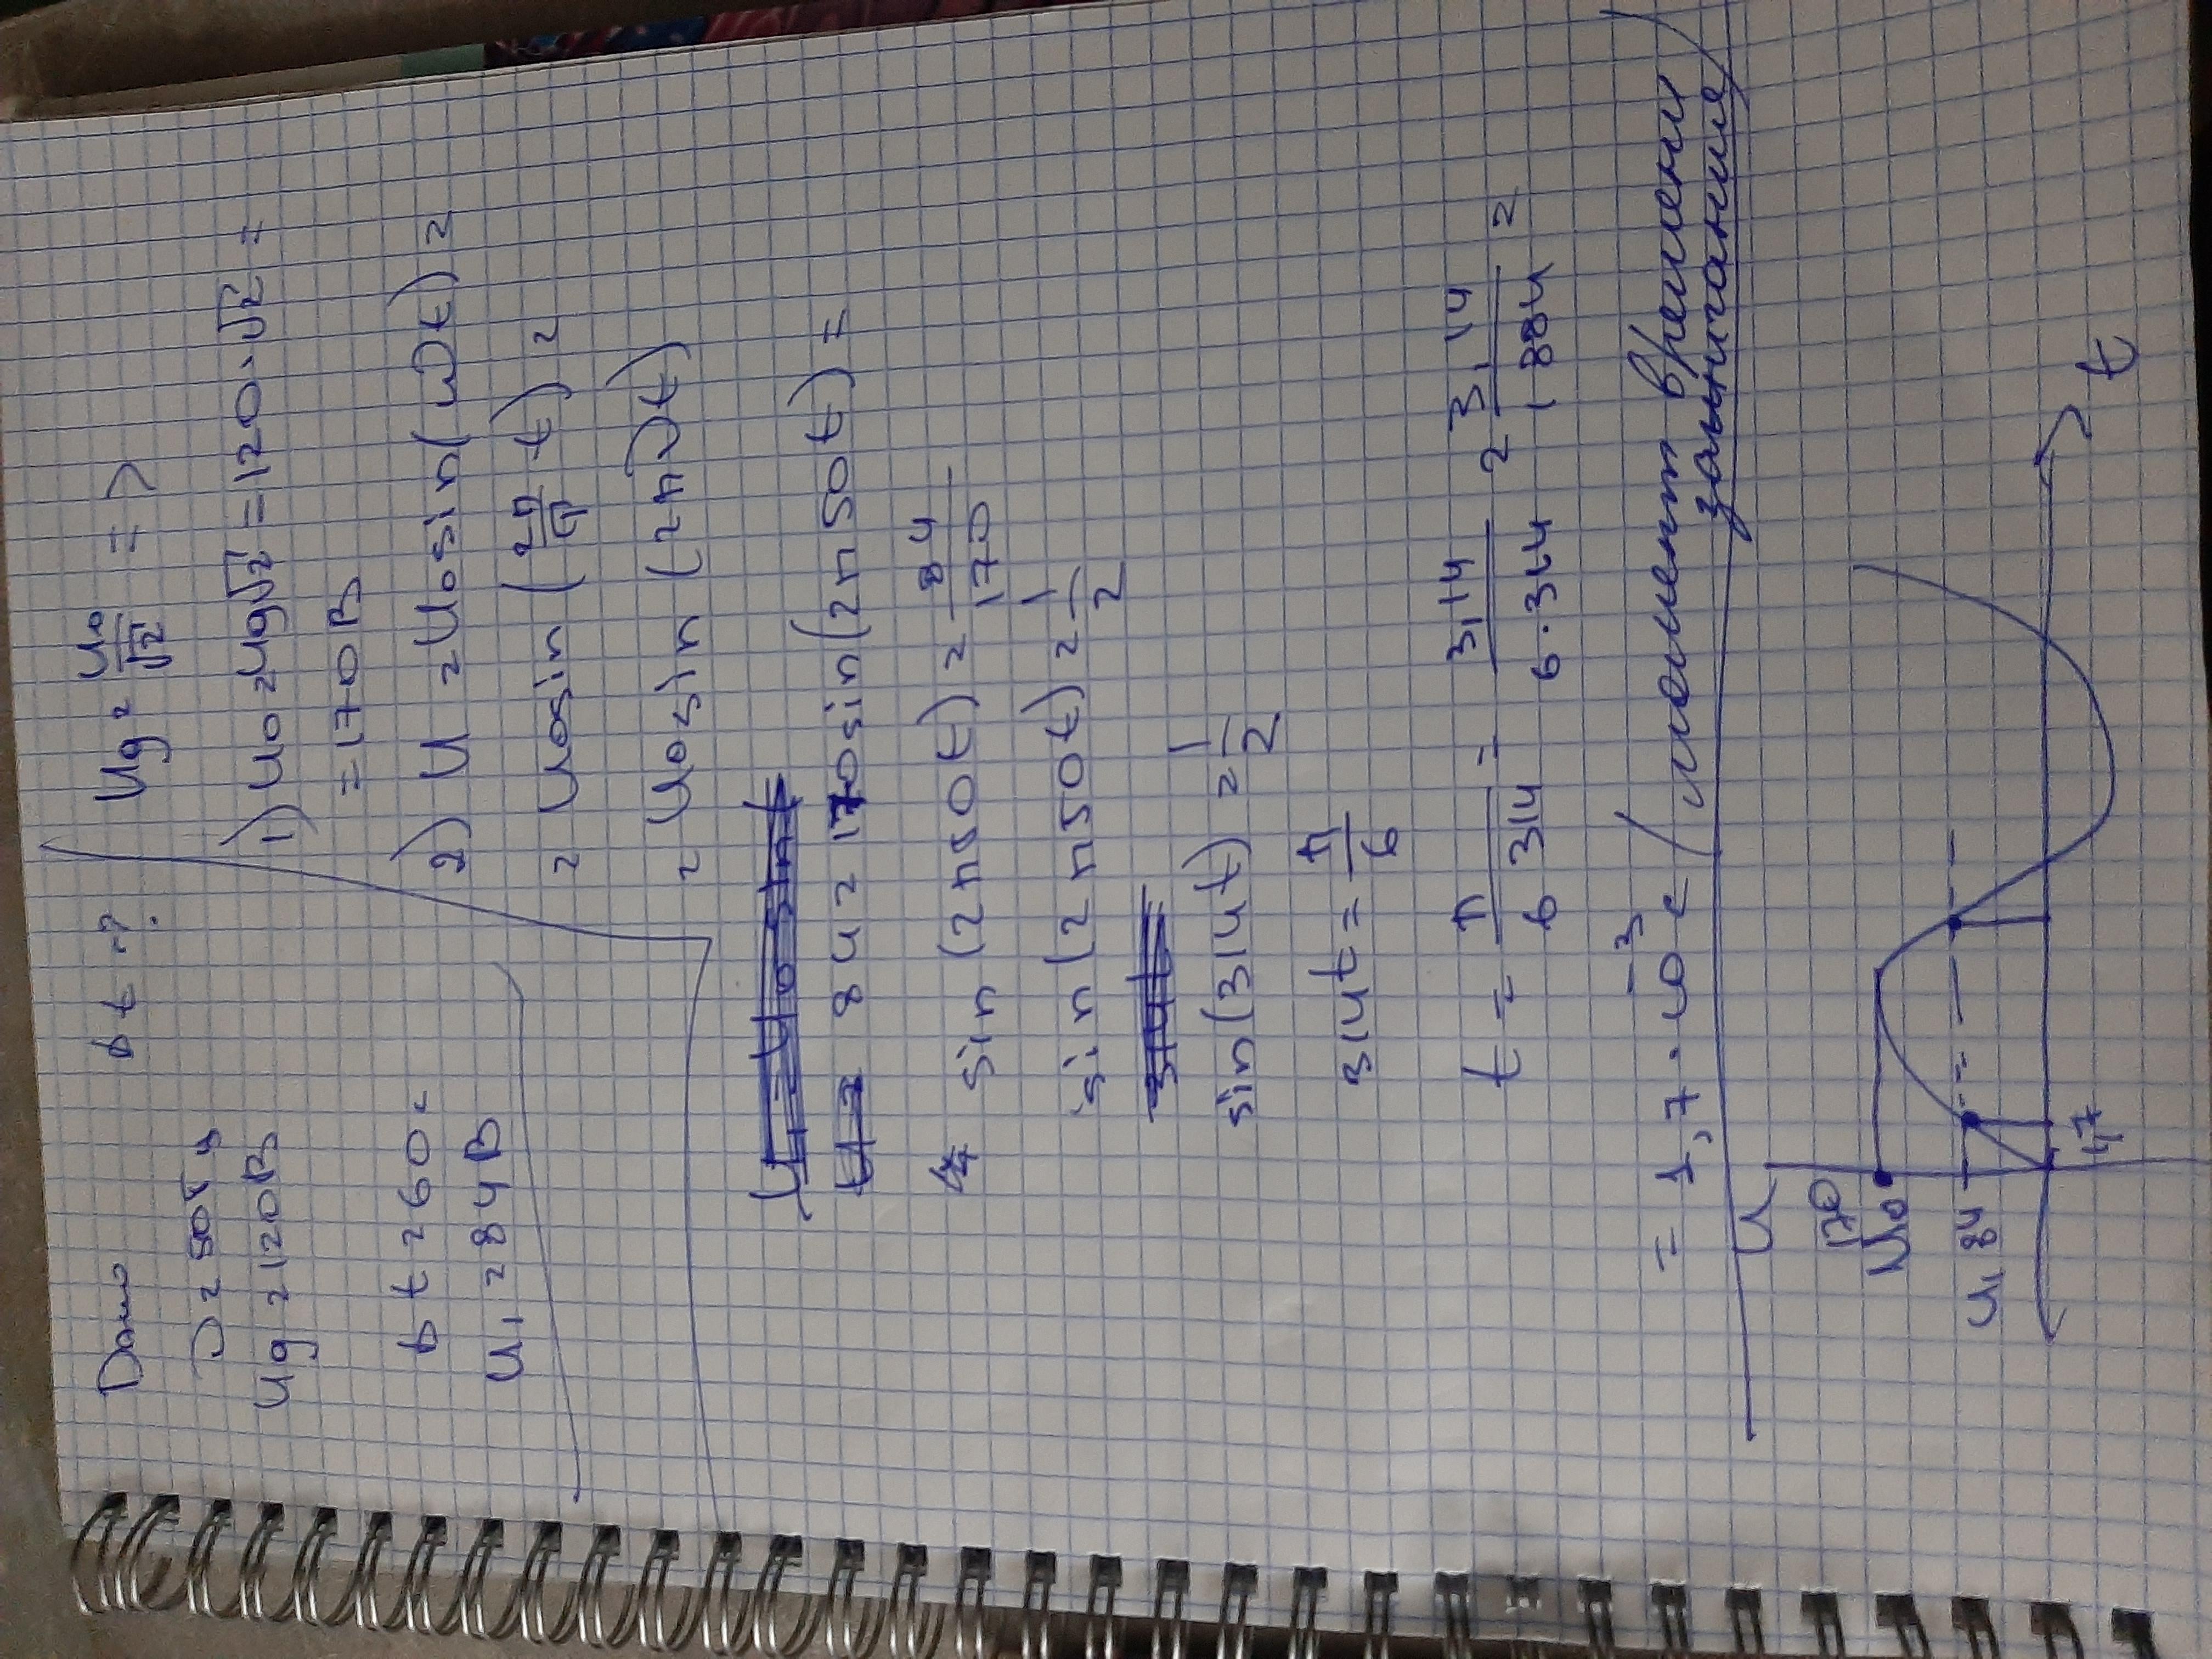 Дано
Δt-?
ν = 50 Гц
Uд = 120 В
Δt = 60 с
U₁ = 84 В
Uд = U₀/√2 =>
1) U₀ = Uд√2 = 120·√2 =
= 170 В
2) U = U₀sin(ωt) =
= U₀sin(2π/T t) =
= U₀sin(2πνt)
84 = 170sin(2π50t) =
sin(2π50t) = 84/170
sin(2π50t) = 1/2
sin(314t) = 1/2
314t = π/6
t = π/6 314 = 3,14/6·314 = 3,14/1884 =
= 1,7·10⁻³ с (момент времени
зажигание)
U
170
U₀
U₁ 84
1,7
t